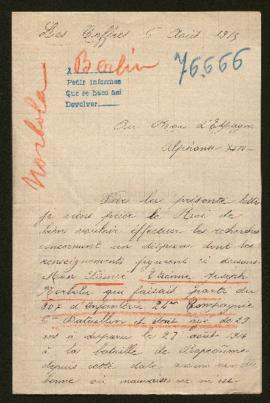 Les Coffres 5 Août 1915
Berlin
76,666
A
Pedir informes
Que se haga así
Devolver
Norbola
Au Roi d'Espagne
Alphonse XIII
Par la présente lettre
je viens prier le Roi de
bien vouloir effectuer les recherches
concernant un disparu dont les
renseignements figurent ci dessous.
Etienne Joseph
Norbola qui faisait partie du
307 d'Infanterie 24me Compagnie
5me Bataillon et était âgé de 23
ans a disparu le 27 août 1914
à la bataille de
depuis cette date, aucune
bonne ou mauvaise ne m'est